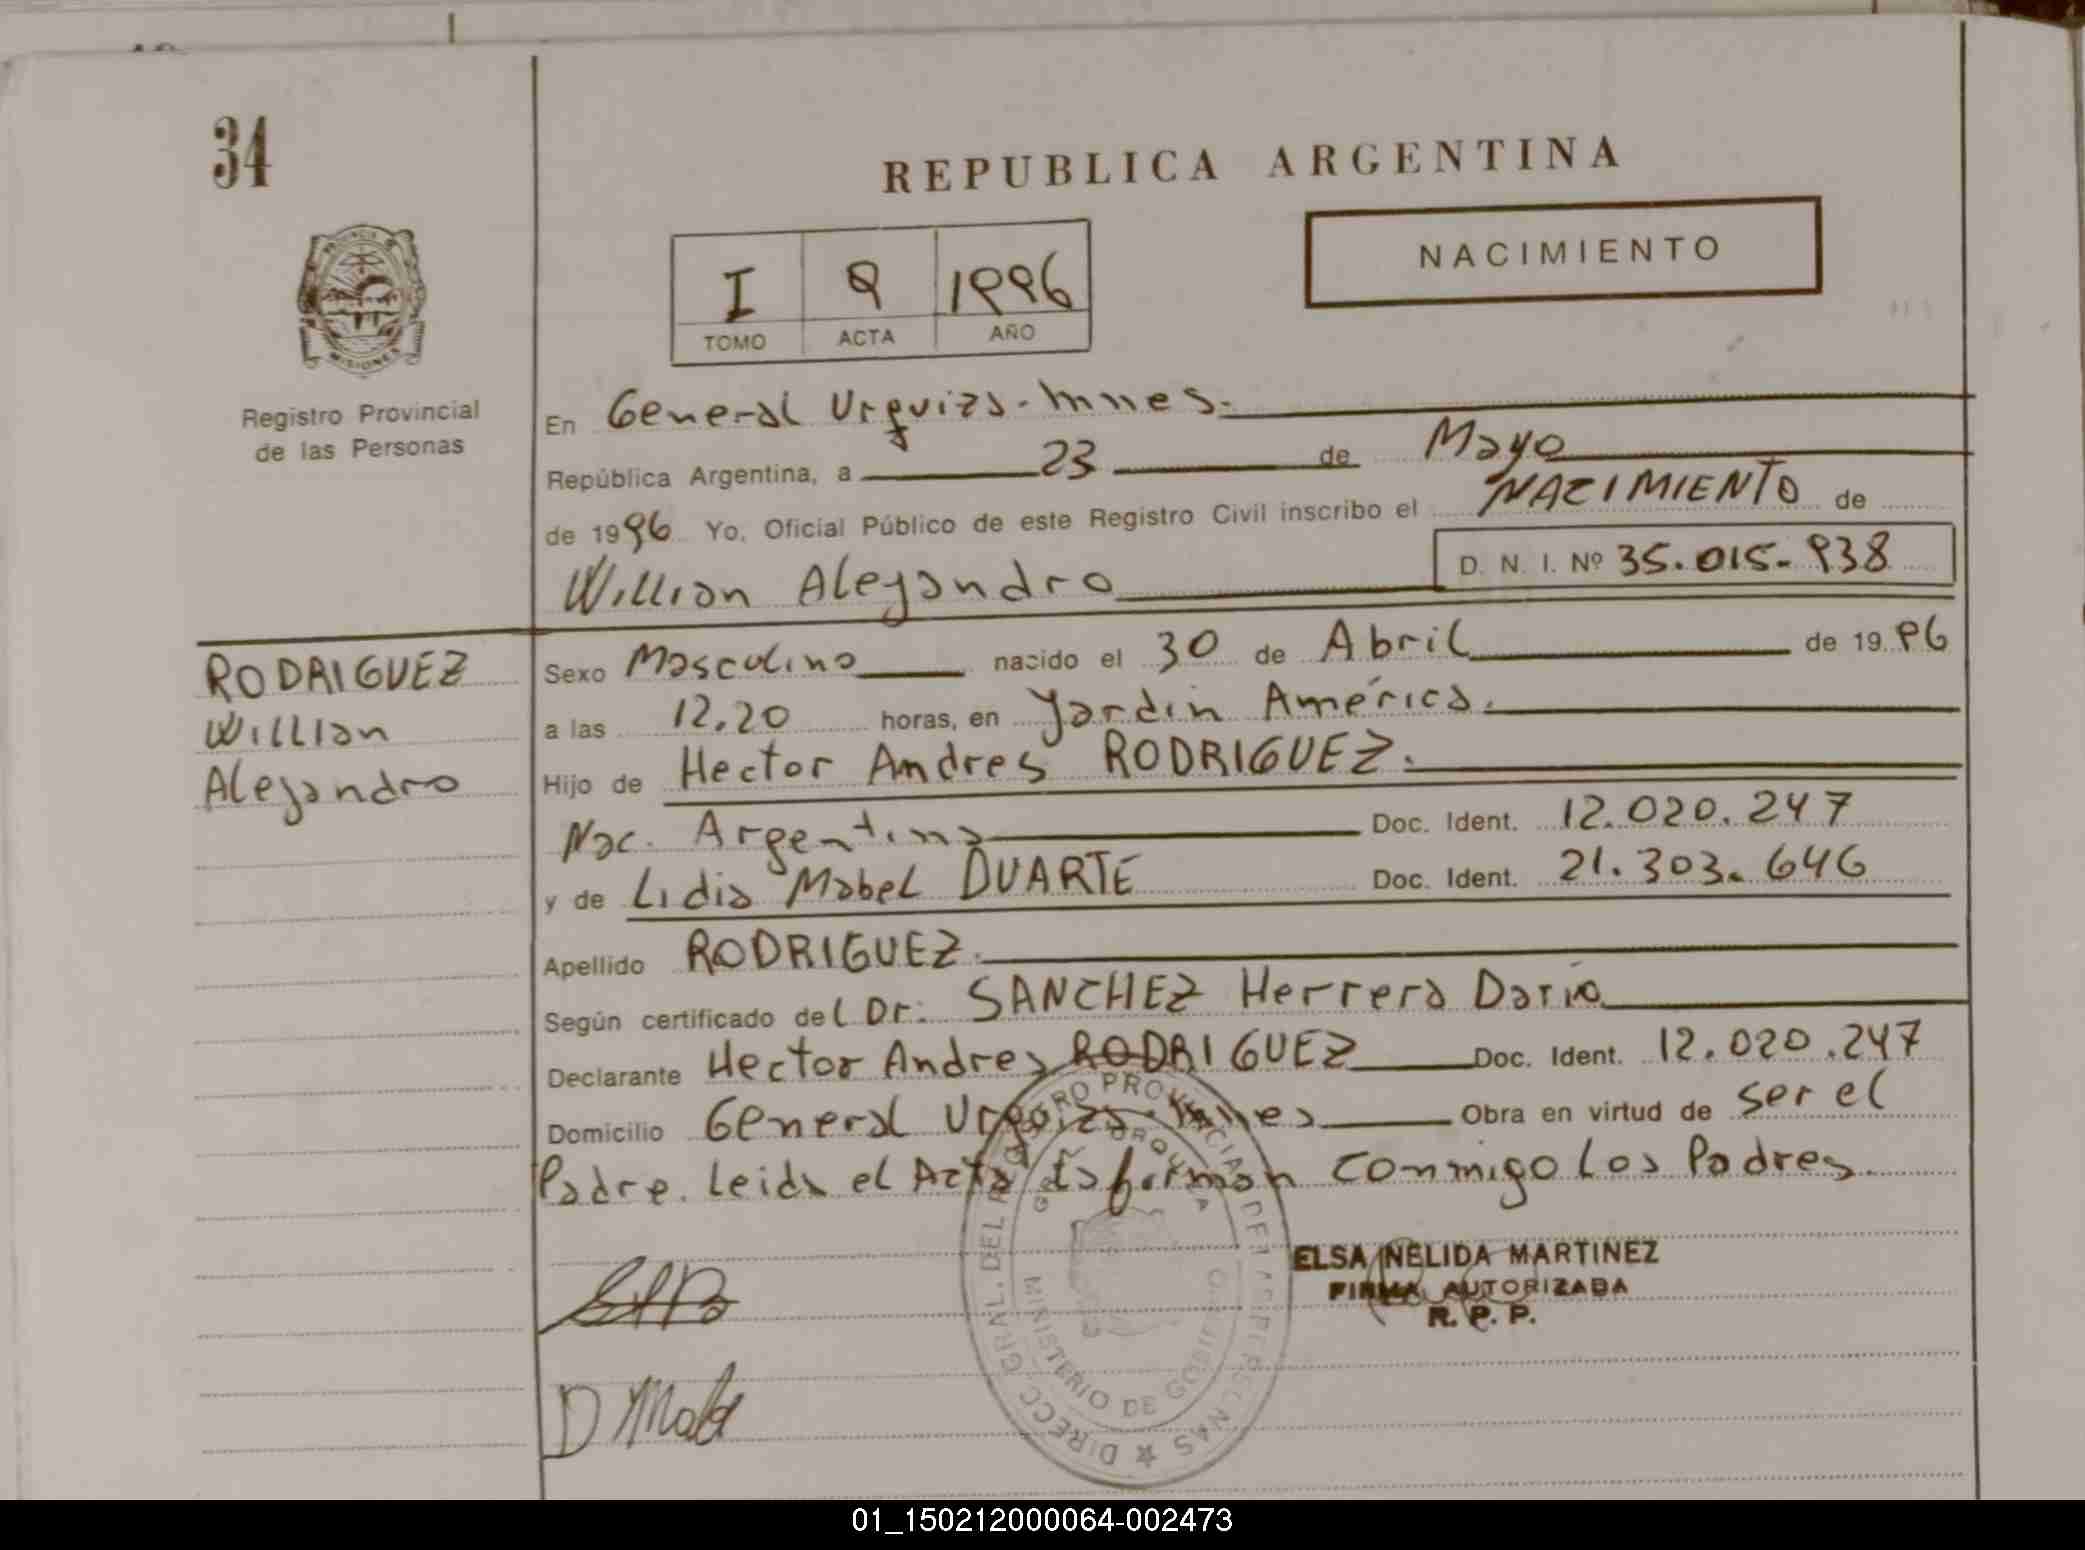 34
REPUBLICA ARGENTINA
NACIMIENTO
I 9 1996
TOMO ACTA AÑO
MISIONES
Registro Provincial
de las Personas
En General Urquiza - Mnes.
República Argentina, a 23 de Mayo
de 1996 Yo, Oficial Público de este Registro Civil inscribo el NACIMIENTO de
Willian Alejandro D. N. I. Nº 35.015.938
RODRIGUEZ
Willian
Alejandro
Sexo Masculino nacido el 30 de Abril de 1996
a las 12.20 horas, en Jardín América.
Hijo de Hector Andres RODRIGUEZ.
Nac. Argentina Doc. Ident. 12.020.247
y de Lidia Mabel DUARTE Doc. Ident. 21.303.646
Apellido RODRIGUEZ.
Según certificado del Dr: SANCHEZ Herrera Dario
Declarante Hector Andres RODRIGUEZ Doc. Ident. 12.020.247
Domicilio General Urquiza - Mnes Obra en virtud de ser el
Padre. Leida el Acta la firman conmigo los Padres.
DIRECC. GRAL. DEL REGISTRO PROVINCIAL DE LAS PERSONAS
MINISTERIO DE GOBIERNO
ELSA NELIDA MARTINEZ
FIRMA AUTORIZADA
R. P. P.
01_150212000064-002473